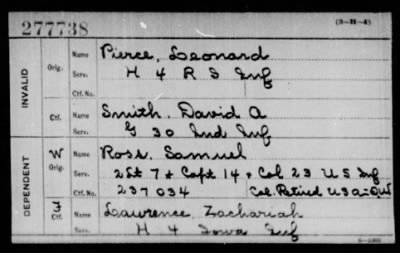 277738 (3-M-4)
INVALID
Orig. Name Pierce, Leonard
Serv. H 4 R I Inf
Ctf. No.
Ctf. Name Smith, David A
Serv. G 30 Ind Inf
DEPENDENT
W Orig. Name Rose, Samuel
Serv. 2 Lt 7 & Capt 14 & Col 23 U S Inf
Ctf. No. 237034 Col. Retired USA
F Ctf. Name Lawrence, Zachariah
Serv. H 4 Iowa Inf